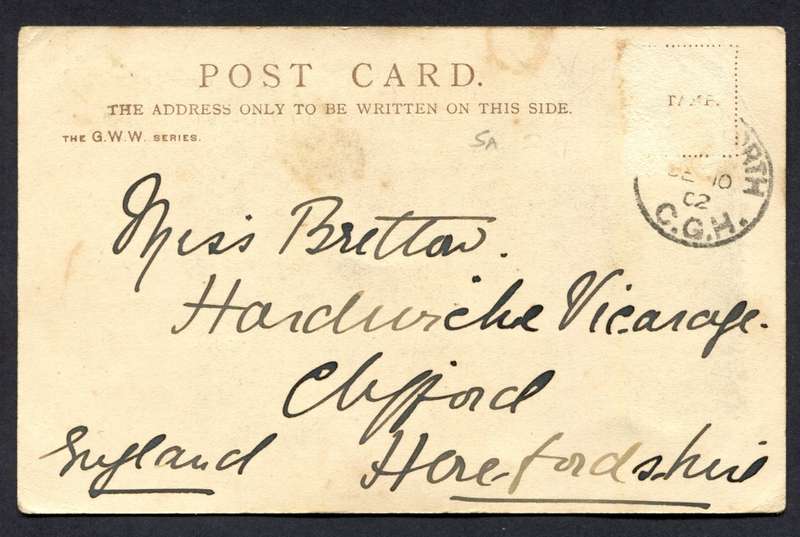 POST CARD.
THE ADDRESS ONLY TO BE WRITTEN ON THIS SIDE.
THE G.W.W. SERIES.
5A
ORTH
DE 10
02
C.G.H.
Miss Brettow.
Hardwicke Vicarage.
Clifford
England Herefordshire